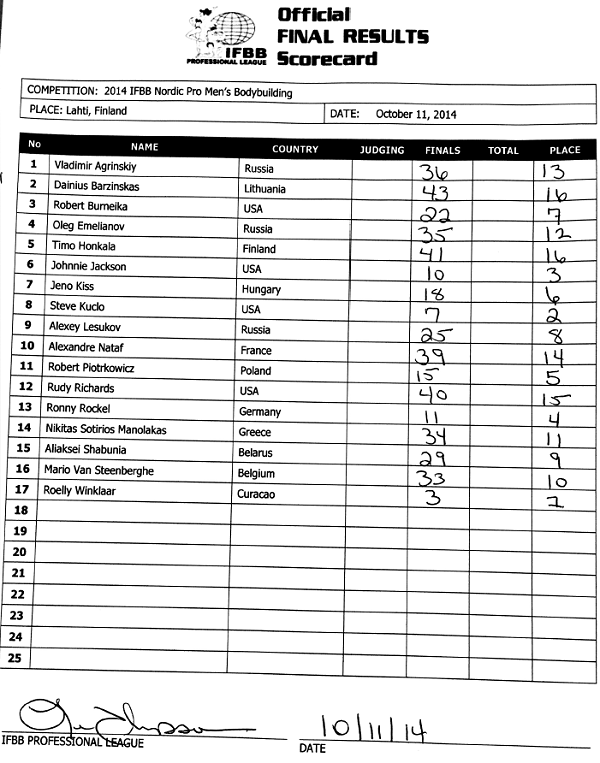 Official
FINAL RESULTS
Scorecard
IFBB
PROFESSIONAL LEAGUE
COMPETITION: 2014 IFBB Nordic Pro Men's Bodybuilding
PLACE: Lahti, Finland DATE: October 11, 2014
No NAME COUNTRY JUDGING FINALS TOTAL PLACE
1 Vladimir Agrinskiy Russia 36 13
2 Dainius Barzinskas Lithuania 43 16
3 Robert Burneika USA 22 7
4 Oleg Emelianov Russia 35 12
5 Timo Honkala Finland 41 16
6 Johnnie Jackson USA 10 3
7 Jeno Kiss Hungary 18 6
8 Steve Kuclo USA 7 2
9 Alexey Lesukov Russia 25 8
10 Alexandre Nataf France 39 14
11 Robert Piotrkowicz Poland 15 5
12 Rudy Richards USA 40 15
13 Ronny Rockel Germany 11 4
14 Nikitas Sotirios Manolakas Greece 34 11
15 Aliaksei Shabunia Belarus 29 9
16 Mario Van Steenberghe Belgium 33 10
17 Roelly Winklaar Curacao 3 1
18
19
20
21
22
23
24
25
10/11/14
IFBB PROFESSIONAL LEAGUE DATE